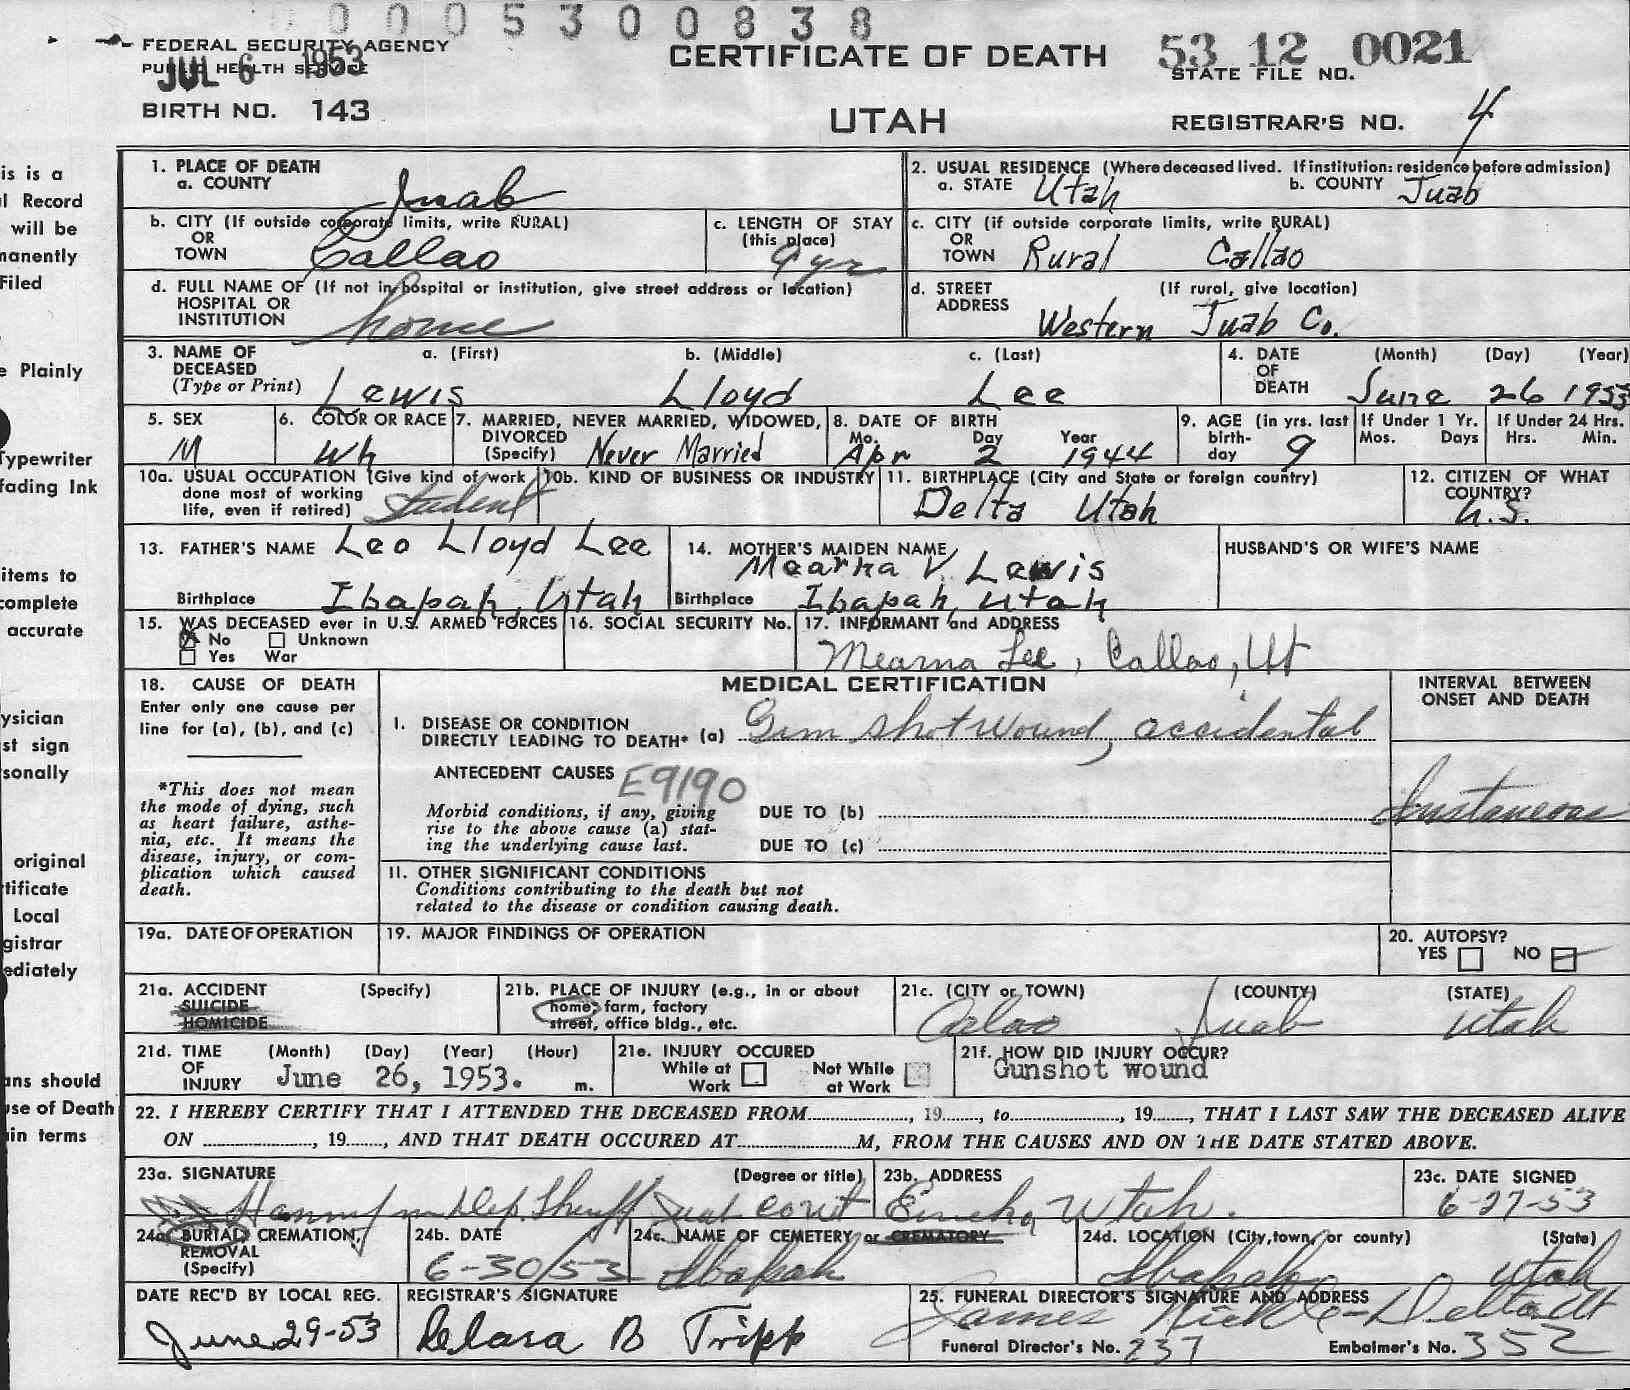 0 0 0 5 3 0 0 8 3 8
FEDERAL SECURITY AGENCY
PUBLIC HEALTH SERVICE
JUL 6 1953
BIRTH NO. 143
CERTIFICATE OF DEATH
UTAH
53 12 0021
STATE FILE NO.
REGISTRAR'S NO. 4
is is a
l Record
will be
manently
Filed
e Plainly
Typewriter
fading Ink
items to
complete
accurate
ysician
st sign
sonally
original
rtificate
Local
gistrar
ediately
ans should
use of Death
in terms
1. PLACE OF DEATH
a. COUNTY Juab
2. USUAL RESIDENCE (Where deceased lived. If institution: residence before admission)
a. STATE Utah b. COUNTY Juab
b. CITY (If outside corporate limits, write RURAL)
OR
TOWN Callao
c. LENGTH OF STAY
(this place)
9 yr
c. CITY (if outside corporate limits, write RURAL)
OR
TOWN Rural Callao
d. FULL NAME OF (If not in hospital or institution, give street address or location)
HOSPITAL OR
INSTITUTION home
d. STREET (If rural, give location)
ADDRESS
Western Juab Co.
3. NAME OF DECEASED (Type or Print)
a. (First) b. (Middle) c. (Last)
Lewis Lloyd Lee
4. DATE OF DEATH (Month) (Day) (Year)
June 26 1953
5. SEX
M
6. COLOR OR RACE
Wh
7. MARRIED, NEVER MARRIED, WIDOWED,
DIVORCED
(Specify) Never Married
8. DATE OF BIRTH
Mo. Day Year
Apr 2 1944
9. AGE (in yrs. last
birth-
day 9
If Under 1 Yr.
Mos. Days
If Under 24 Hrs.
Hrs. Min.
10a. USUAL OCCUPATION (Give kind of work
done most of working
life, even if retired) Student
10b. KIND OF BUSINESS OR INDUSTRY
11. BIRTHPLACE (City and State or foreign country)
Delta Utah
12. CITIZEN OF WHAT
COUNTRY?
U.S.
13. FATHER'S NAME Leo Lloyd Lee
Birthplace Ibapah, Utah
14. MOTHER'S MAIDEN NAME
Mearna V Lewis
Birthplace Ibapah, Utah
HUSBAND'S OR WIFE'S NAME
15. WAS DECEASED ever in U.S. ARMED FORCES
No Unknown
Yes War
16. SOCIAL SECURITY No.
17. INFORMANT and ADDRESS
Mearna Lee, Callao, Ut
18. CAUSE OF DEATH
Enter only one cause per
line for (a), (b), and (c)
*This does not mean
the mode of dying, such
as heart failure, asthe-
nia, etc. It means the
disease, injury, or com-
plication which caused
death.
MEDICAL CERTIFICATION
I. DISEASE OR CONDITION
DIRECTLY LEADING TO DEATH* (a) Gun shot wound, accidental
ANTECEDENT CAUSES E9190
Morbid conditions, if any, giving
rise to the above cause (a) stat-
ing the underlying cause last.
DUE TO (b)
DUE TO (c)
INTERVAL BETWEEN
ONSET AND DEATH
Instaneous
II. OTHER SIGNIFICANT CONDITIONS
Conditions contributing to the death but not
related to the disease or condition causing death.
19a. DATE OF OPERATION
19. MAJOR FINDINGS OF OPERATION
20. AUTOPSY?
YES NO
21a. ACCIDENT (Specify)
SUICIDE
HOMICIDE
21b. PLACE OF INJURY (e.g., in or about
home, farm, factory
street, office bldg., etc.
21c. (CITY or TOWN) (COUNTY) (STATE)
Calao Juab Utah
21d. TIME OF INJURY (Month) (Day) (Year) (Hour)
June 26, 1953. m.
21e. INJURY OCCURED
While at Work Not While at Work
21f. HOW DID INJURY OCCUR?
Gunshot wound
22. I HEREBY CERTIFY THAT I ATTENDED THE DECEASED FROM, 19, to, 19, THAT I LAST SAW THE DECEASED ALIVE
ON, 19, AND THAT DEATH OCCURED AT M, FROM THE CAUSES AND ON THE DATE STATED ABOVE.
23a. SIGNATURE (Degree or title)
Dep. Sheriff Juab
23b. ADDRESS
Eureka, Utah.
23c. DATE SIGNED
6-27-53
24a. BURIAL, CREMATION,
REMOVAL
(Specify)
24b. DATE
6-30/53
24c. NAME OF CEMETERY or CREMATORY
Ibapah
24d. LOCATION (City, town, or county) (State)
Ibapah Utah
DATE REC'D BY LOCAL REG.
June 29-53
REGISTRAR'S SIGNATURE
Clara B Tripp
25. FUNERAL DIRECTOR'S SIGNATURE AND ADDRESS
James Nickle - Delta Ut
Funeral Director's No. 237 Embalmer's No. 352